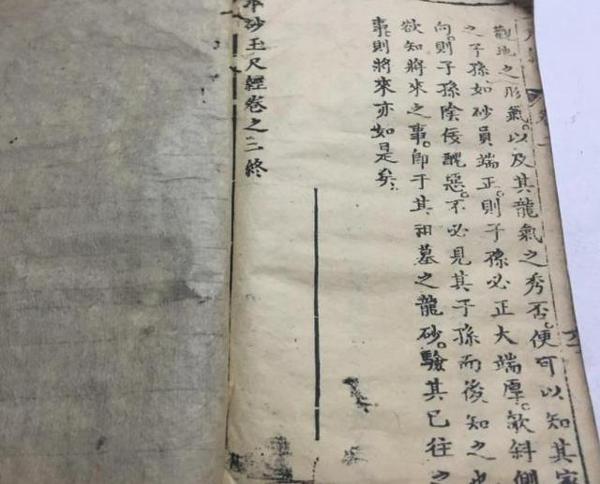 觀地之形氣。以及其龍氣之秀否。便可以知其家
之子孫如砂員端正。則子孫必正大端厚。欹斜側
向。則子孫陰佞醜惡。不必見其子孫而後知之也
欲知將來之事。即于其祖墓之龍砂。驗其已往之
事。則將來亦如是矣。
砂玉尺經卷之二終